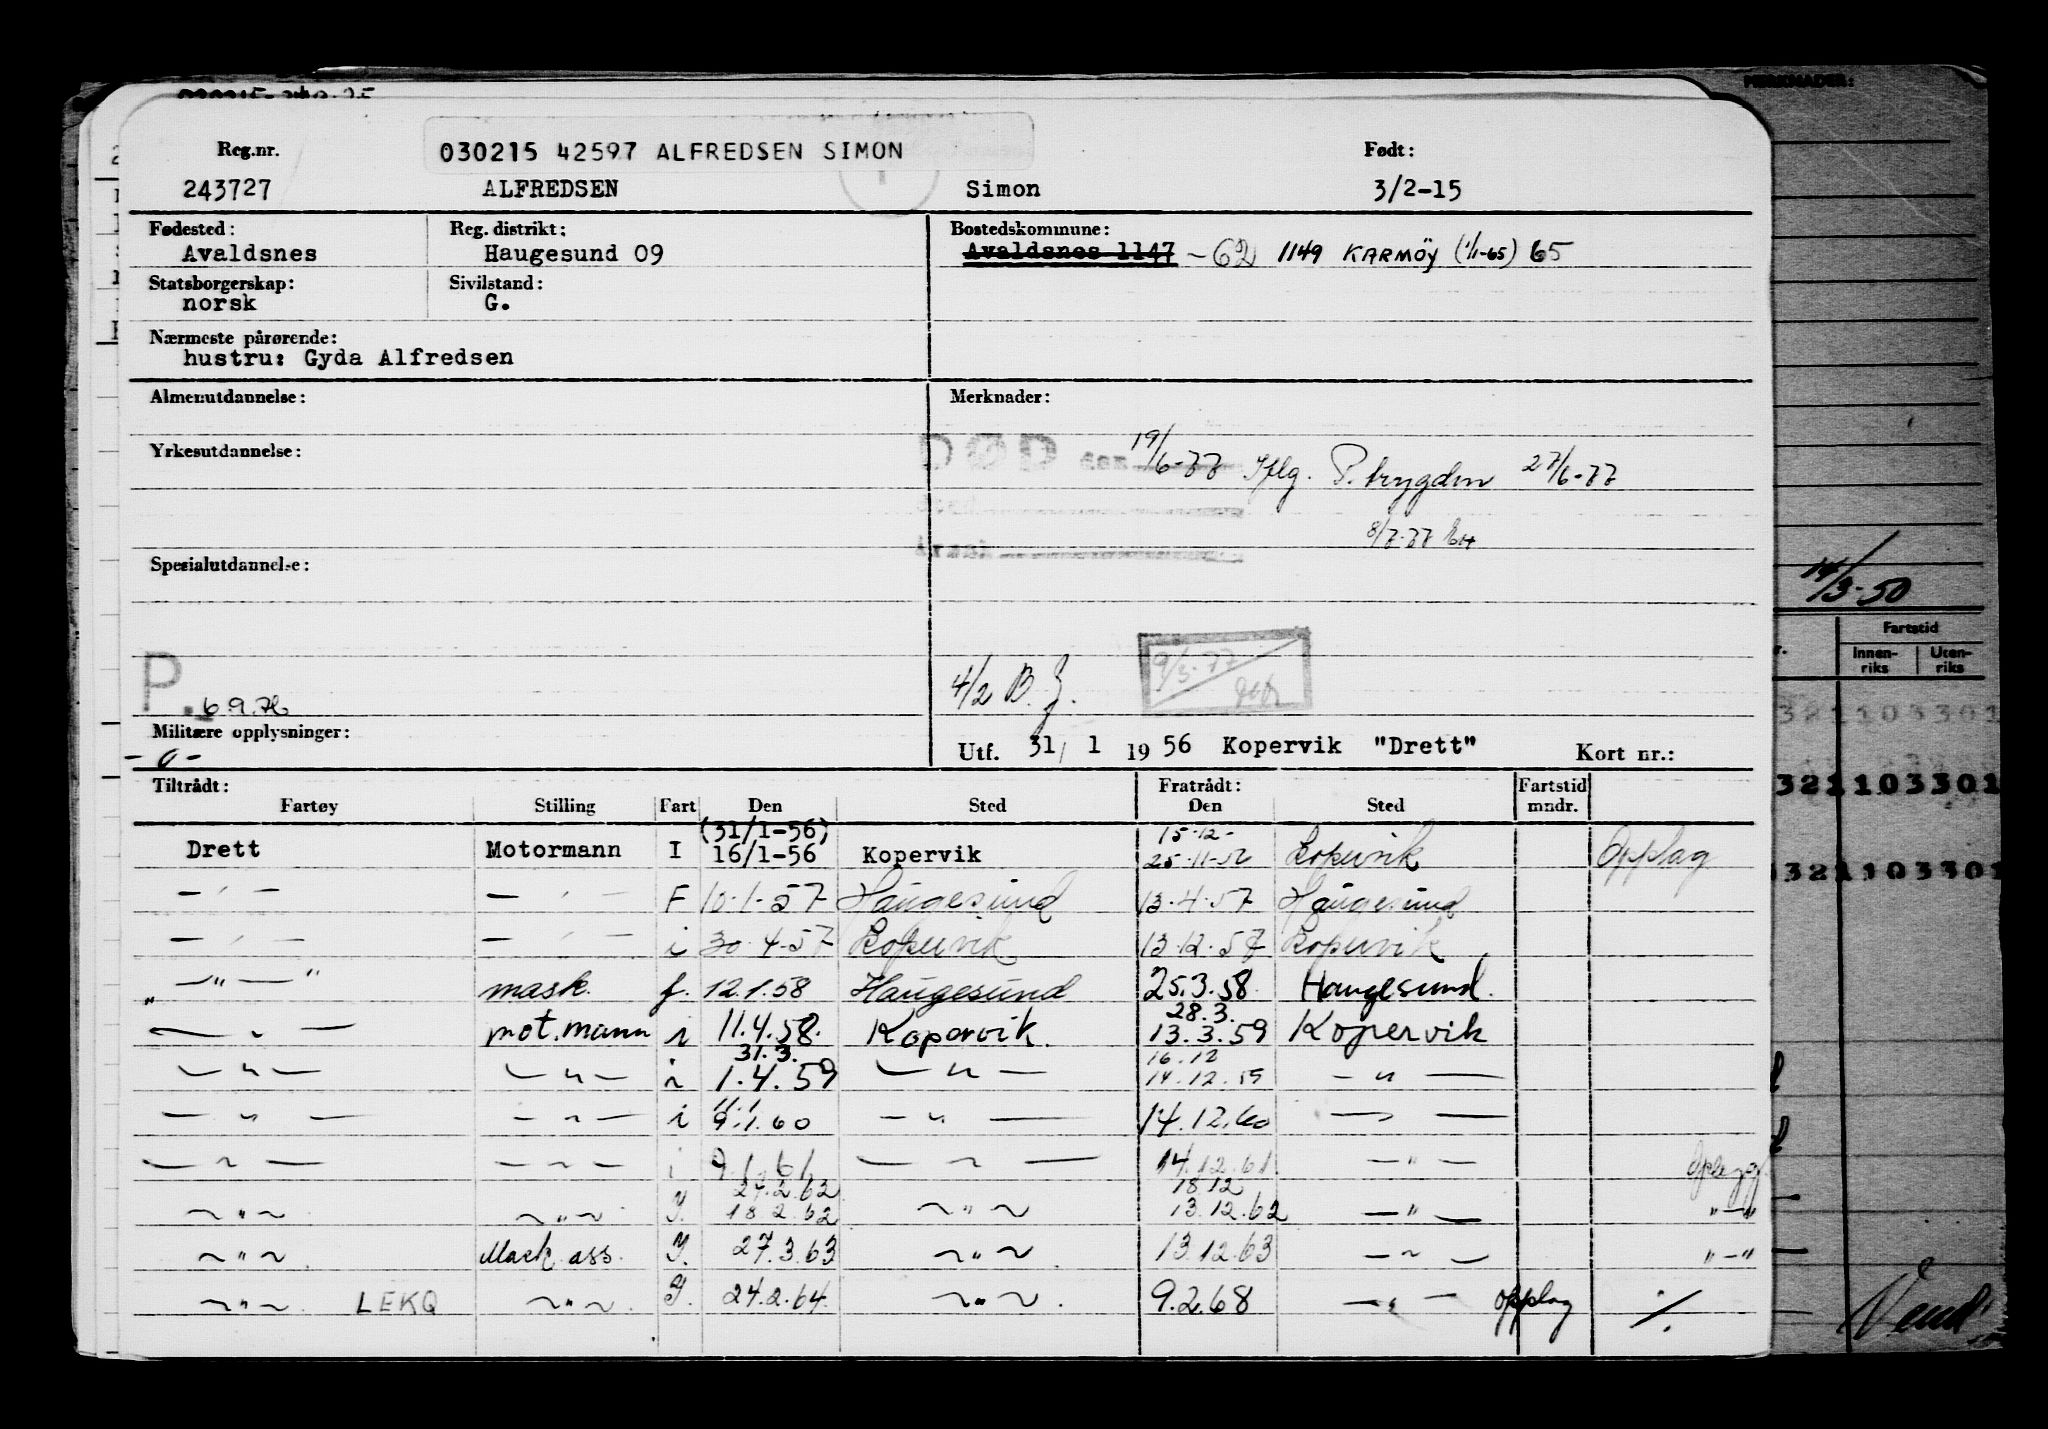 MERKNADER:
030215 42597 ALFREDSEN SIMON
Reg.nr. Født:
243727 ALFREDSEN Simon 3/2-15
Fødested: Reg. distrikt: Bostedskommune:
Avaldsnes Haugesund 09 Avaldsnes 1147 -62 1149 KARMÖY (1/1-65) 65
Statsborgerskap: Sivilstand:
norsk G.
Nærmeste pårørende:
hustru: Gyda Alfredsen
Almenutdannelse: Merknader:
Yrkesutdannelse: DØD 19/6-77 Iflg. P. trygden 27/6-77
8/7-77
Spesialutdannelse:
14/3-50
Fartstid
Innen-riks Uten-riks
P. 6.9.76 4/2 B.J. 9/5-77
Militære opplysninger:
-0- Utf. 31/ 1 1956 Kopervik "Drett" Kort nr.:
321103301
321103301
321103301
Tiltrådt: Fratrådt: Fartstid
Fartøy Stilling Fart Den Sted Den Sted mndr.
(31/1-56) 15-12-
Drett Motormann I 16/1-56 Kopervik 25-11-56 Kopervik Opplag
— ' — — ' — F 10-1-57 Haugesund 13-4-57 Haugesund
— ' — — ' — i 30-4-57 Kopervik 13-12-57 Kopervik
— " — mask. f. 12.1.58 Haugesund 25.3.58 Haugesund.
28.3.
— " — mot.mann i 11.4.58. Kopervik. 13.3.59 Kopervik
31.3. 16.12
— " — — " — i 1.4.59 — " — 14.12.59 — " —
11.1
— " — — " — i 9.1.60 — " — 14.12.60 — " —
— " — — " — i 9.1.61 — " — 14.12.61 — " — Opplegg
27.2.62 18.12
— " — — " — I. 18.2.62 — " — 13.12.62 — " — " — "
— " — Mask. ass. I. 27.3.63 — " — 13.12.63 — " — " — "
— " — LEKQ — " — I. 24.2.64 — " — 9.2.68 — " — opplag ·/.